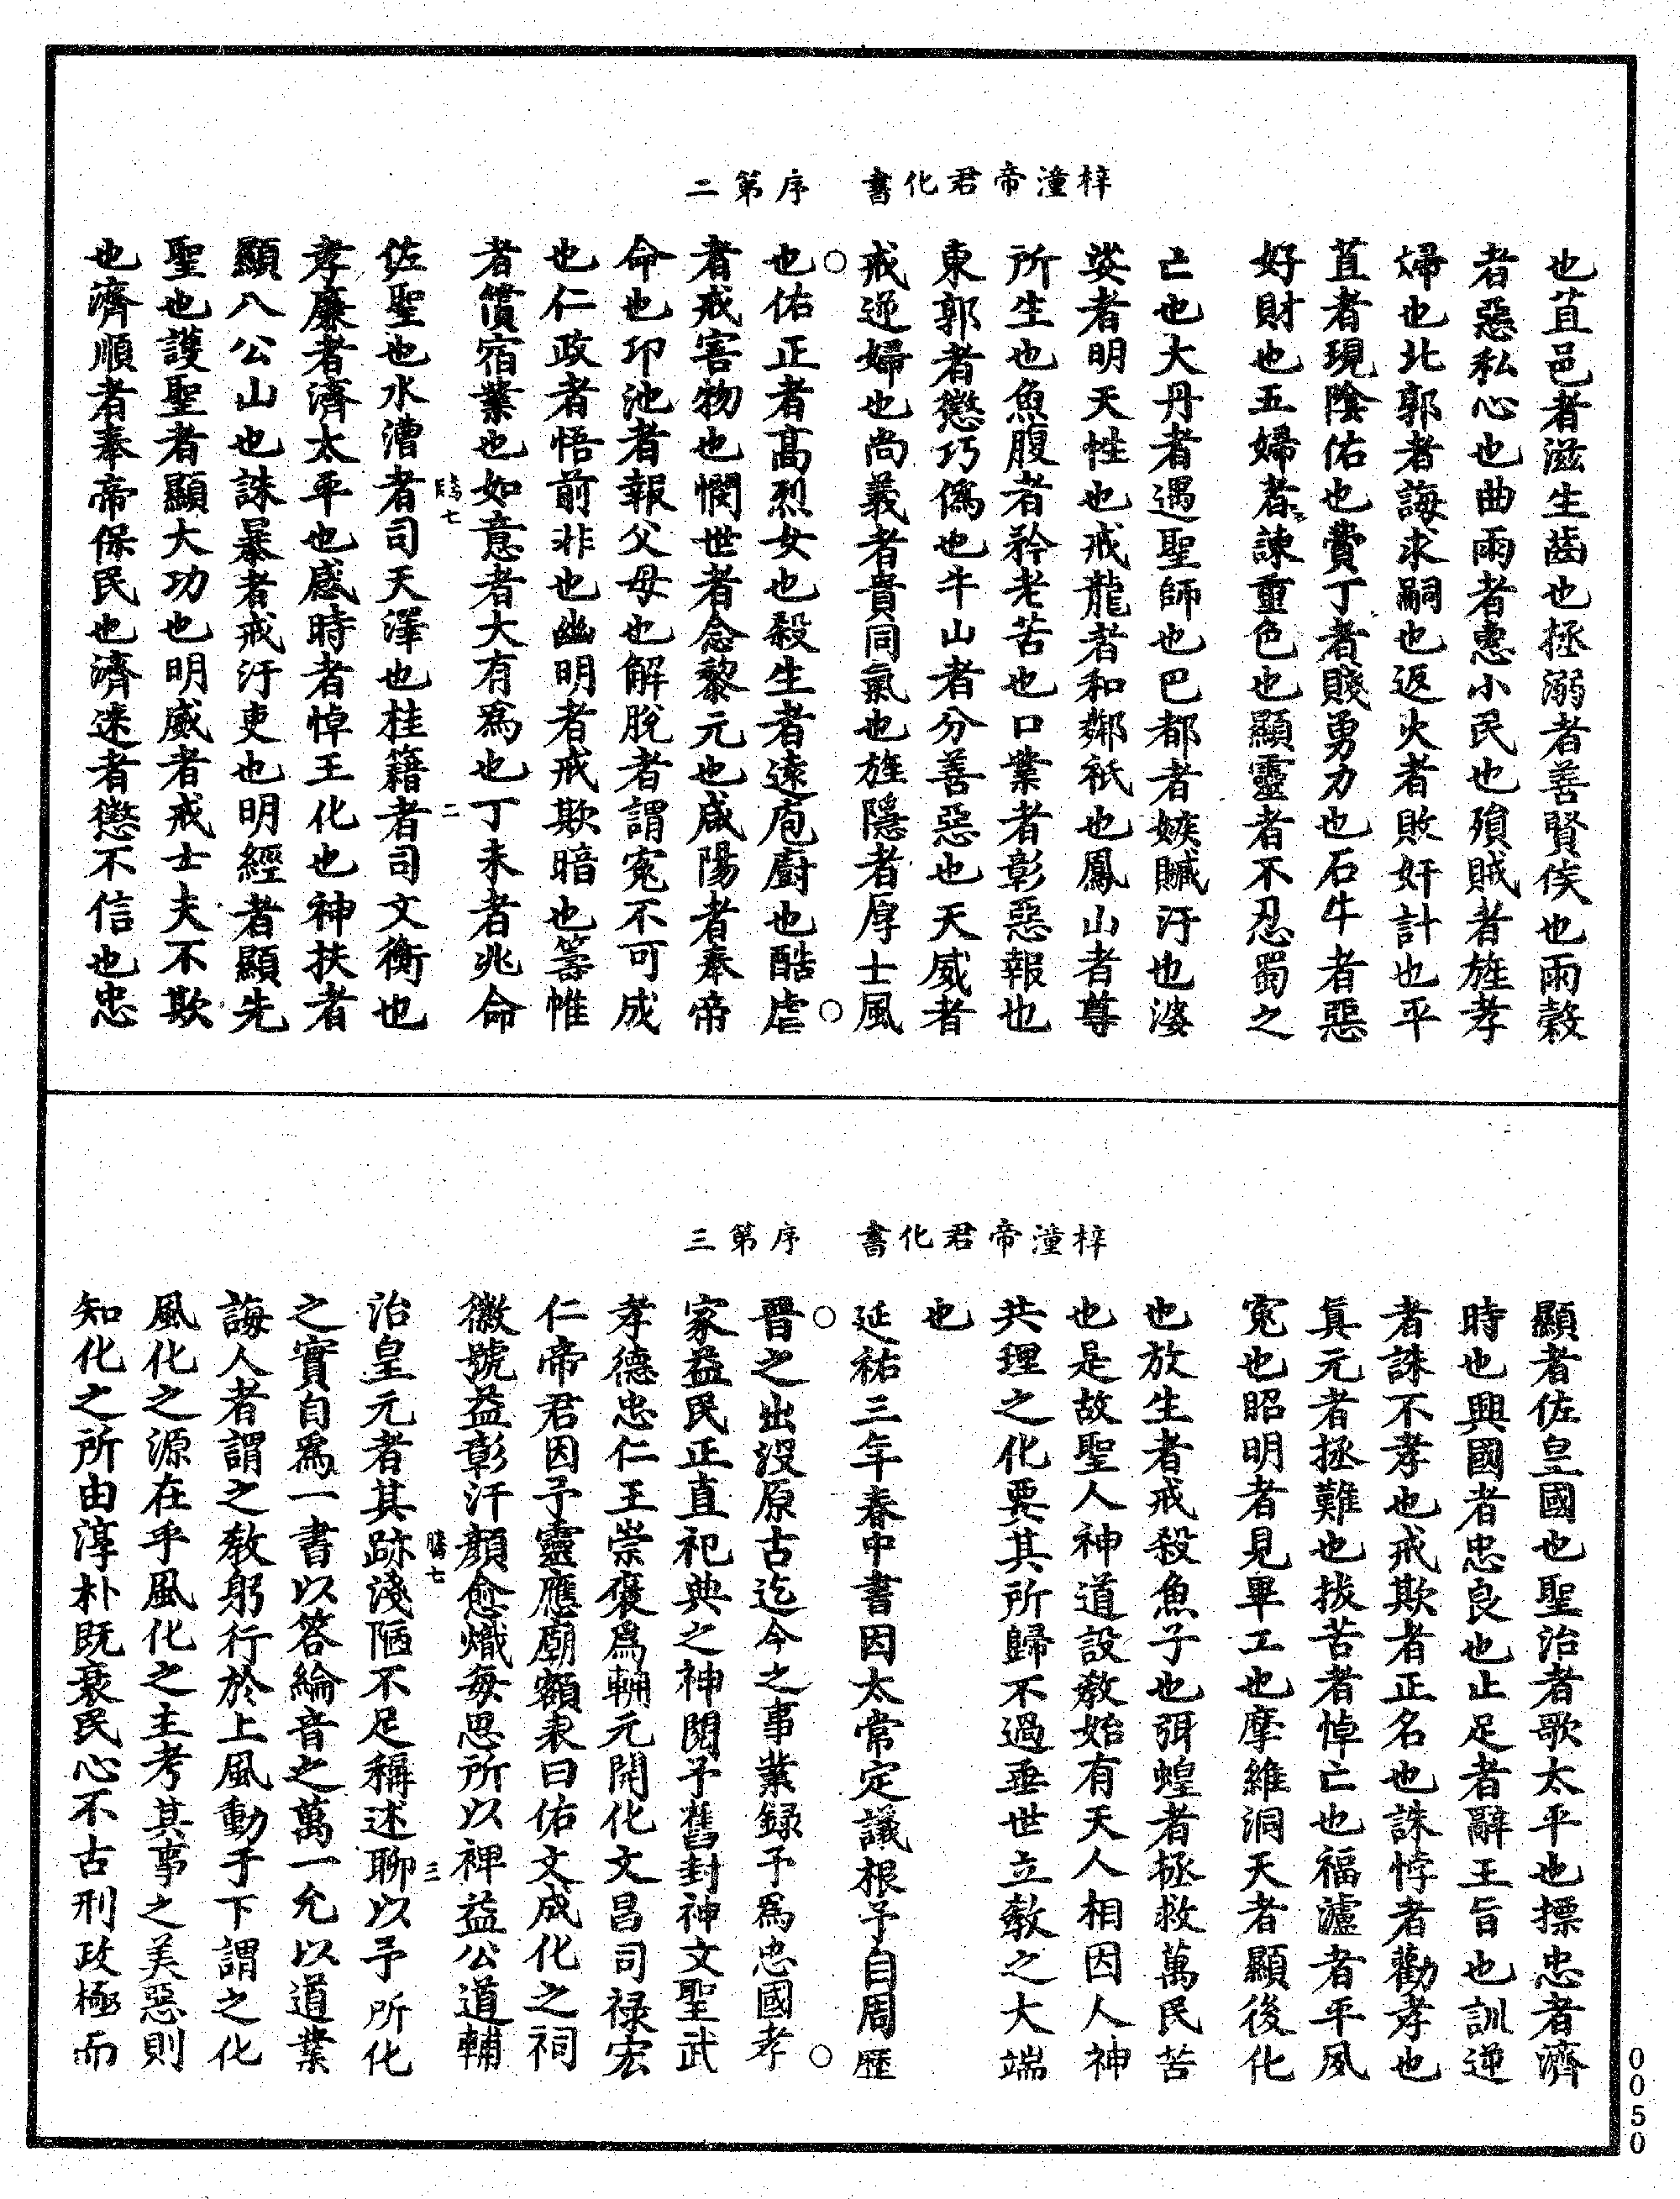 梓潼帝君化書　序第二
也苴邑者滋生齒也拯溺者善賢侯也雨穀
者惡私心也曲雨者惠小民也殞賊者旌孝
婦也北郭者誨求嗣也返火者敗奸計也平
苴者現陰佑也費丁者賤勇力也石牛者惡
好財也五婦者諫重色也顯靈者不忍蜀之
亡也大丹者遇聖師也巴都者嫉贓汙也婆
娑者明天性也戒龍者和鄰祇也鳳山者尊
所生也魚腹者矜老苦也口業者彰惡報也
東郭者懲巧偽也牛山者分善惡也天威者
戒逆婦也尚義者貴同氣也旌隱者厚士風
也佑正者高烈女也殺生者遠庖廚也酷虐
者戒害物也憫世者念黎元也咸陽者奉帝
命也邛池者報父母也解脫者謂寃不可成
也仁政者悟前非也幽明者戒欺暗也籌帷
者償宿業也如意者大有爲也丁未者兆命
騰七　二
佐聖也水漕者司天澤也桂籍者司文衡也
孝廉者濟太平也感時者悼王化也神扶者
顯八公山也誅暴者戒汙吏也明經者顯先
聖也護聖者顯大功也明威者戒士夫不欺
也濟順者奉帝保民也濟迷者懲不信也忠
梓潼帝君化書　序第三
顯者佐皇國也聖治者歌太平也摽忠者濟
時也興國者忠良也止足者辭王旨也訓逆
者誅不孝也戒欺者正名也誅悖者勸孝也
真元者拯難也拔苦者悼亡也福瀘者平夙
寃也昭明者見畢工也摩維洞天者顯後化
也放生者戒殺魚子也弭蝗者拯救萬民苦
也是故聖人神道設教始有天人相因人神
共理之化要其所歸不過垂世立教之大端
也
延祐三年春中書因太常定議根予自周歷
晉之出沒原古迄今之事業録予爲忠國孝
家益民正直祀典之神閱予舊封神文聖武
孝德忠仁王崇褒爲輔元開化文昌司禄宏
仁帝君因予靈應廟額隶曰佑文成化之祠
徽號益彰汗顔愈熾每思所以裨益公道輔
騰七　三
治皇元者其跡淺陋不足稱述聊以予所化
之實自爲一書以答綸音之萬一允以道業
誨人者謂之教躬行於上風動于下謂之化
風化之源在乎風化之主考其事之美惡則
知化之所由淳朴既衰民心不古刑政極而
0050